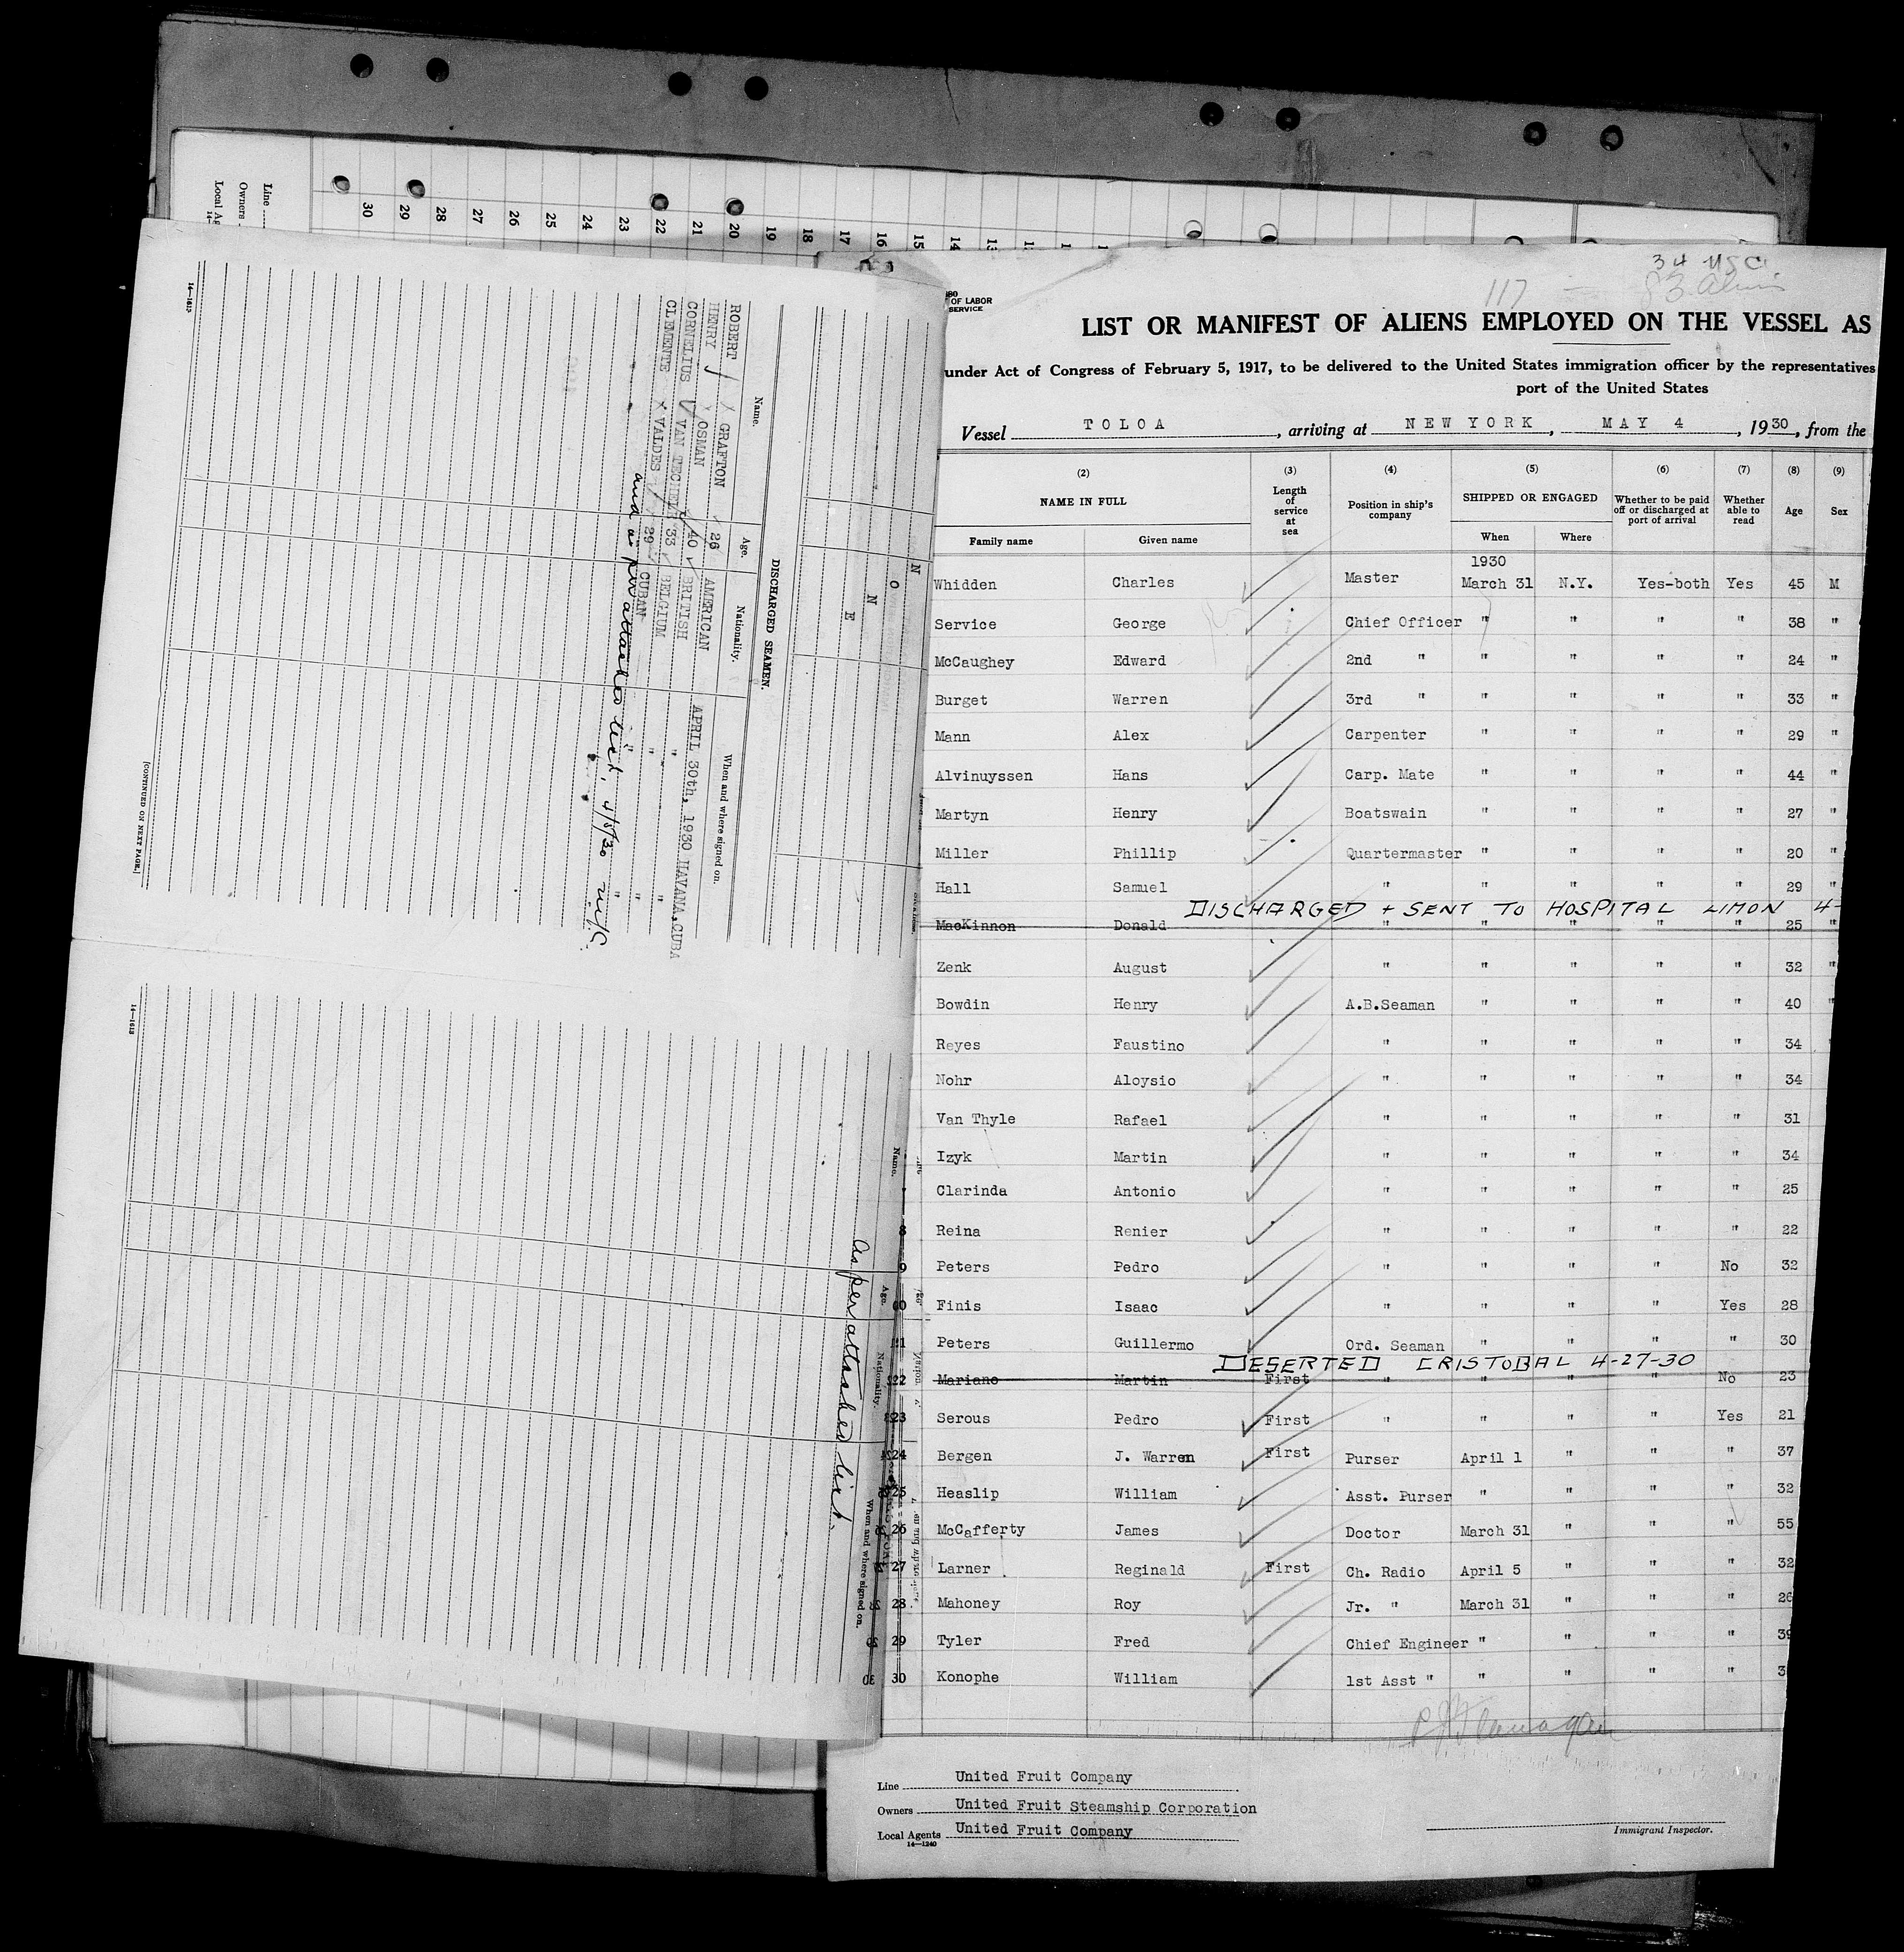 Line
Owners
Local Ag
30 29 28 27 26 25 24 23 22 21 20 19 18 17 16 15 14
34 USC
117 - 83 Aliens
OF LABOR
SERVICE
LIST OR MANIFEST OF ALIENS EMPLOYED ON THE VESSEL AS
under Act of Congress of February 5, 1917, to be delivered to the United States immigration officer by the representatives
port of the United States
Vessel TOLOA, arriving at NEW YORK, MAY 4, 1930, from the
(2) (3) (4) (5) (6) (7) (8) (9)
NAME IN FULL Length of service at sea Position in ship's company SHIPPED OR ENGAGED Whether to be paid off or discharged at port of arrival Whether able to read Age Sex
Family name Given name When Where
1930
Whidden Charles Master March 31 N.Y. Yes-both Yes 45 M
Service George Chief Officer " " " " 38 "
McCaughey Edward 2nd " " " " " 24 "
Burget Warren 3rd " " " " " 33 "
Mann Alex Carpenter " " " " 29 "
Alvinuyssen Hans Carp. Mate " " " " 44 "
Martyn Henry Boatswain " " " " 27 "
Miller Phillip Quartermaster " " " " 20 "
Hall Samuel " " " " " 29 "
DISCHARGED + SENT TO HOSPITAL LIMON 4-
MacKinnon Donald " " " " " 25 "
Zenk August " " " " " 32 "
Bowdin Henry A.B.Seaman " " " " 40 "
Reyes Faustino " " " " " 34
Nohr Aloysio " " " " " 34
Van Thyle Rafael " " " " " 31
Izyk Martin " " " " " 34
Clarinda Antonio " " " " " 25
Reina Renier " " " " " 22
Peters Pedro " " " " No 32
Finis Isaac " " " " Yes 28
Peters Guillermo Ord. Seaman " " " " 30
DESERTED CRISTOBAL 4-27-30
22 Mariano Martin First " " " " No 23
23 Serous Pedro First " " " " Yes 21
24 Bergen J. Warren First Purser April 1 " " " 37
25 Heaslip William Asst. Purser " " " " 32
26 McCafferty James Doctor March 31 " " " 55
27 Larner Reginald First Ch. Radio April 5 " " " 32
28 Mahoney Roy Jr. " March 31 " " " 26
29 Tyler Fred Chief Engineer " " " " 39
30 Konophe William 1st Asst " " " " "
Line United Fruit Company
Owners United Fruit Steamship Corporation
Local Agents United Fruit Company
14-1240
Immigrant Inspector.
N O N E
DISCHARGED SEAMEN.
Name. Age. Nationality. When and where signed on.
ROBERT GRAFTON 26 AMERICAN APRIL 30th, 1930 HAVANA, CUBA
HENRY OSMAN 40 BRITISH " "
CORNELIUS VAN 33 BELGIUM " "
CLEMENTE VALDES 29 CUBAN " "
and as per attached list. 4/5/30
14-1613
[CONTINUED ON NEXT PAGE.]
Name. Age. Nationality. When and where signed on.
as per attached list.
14-1613